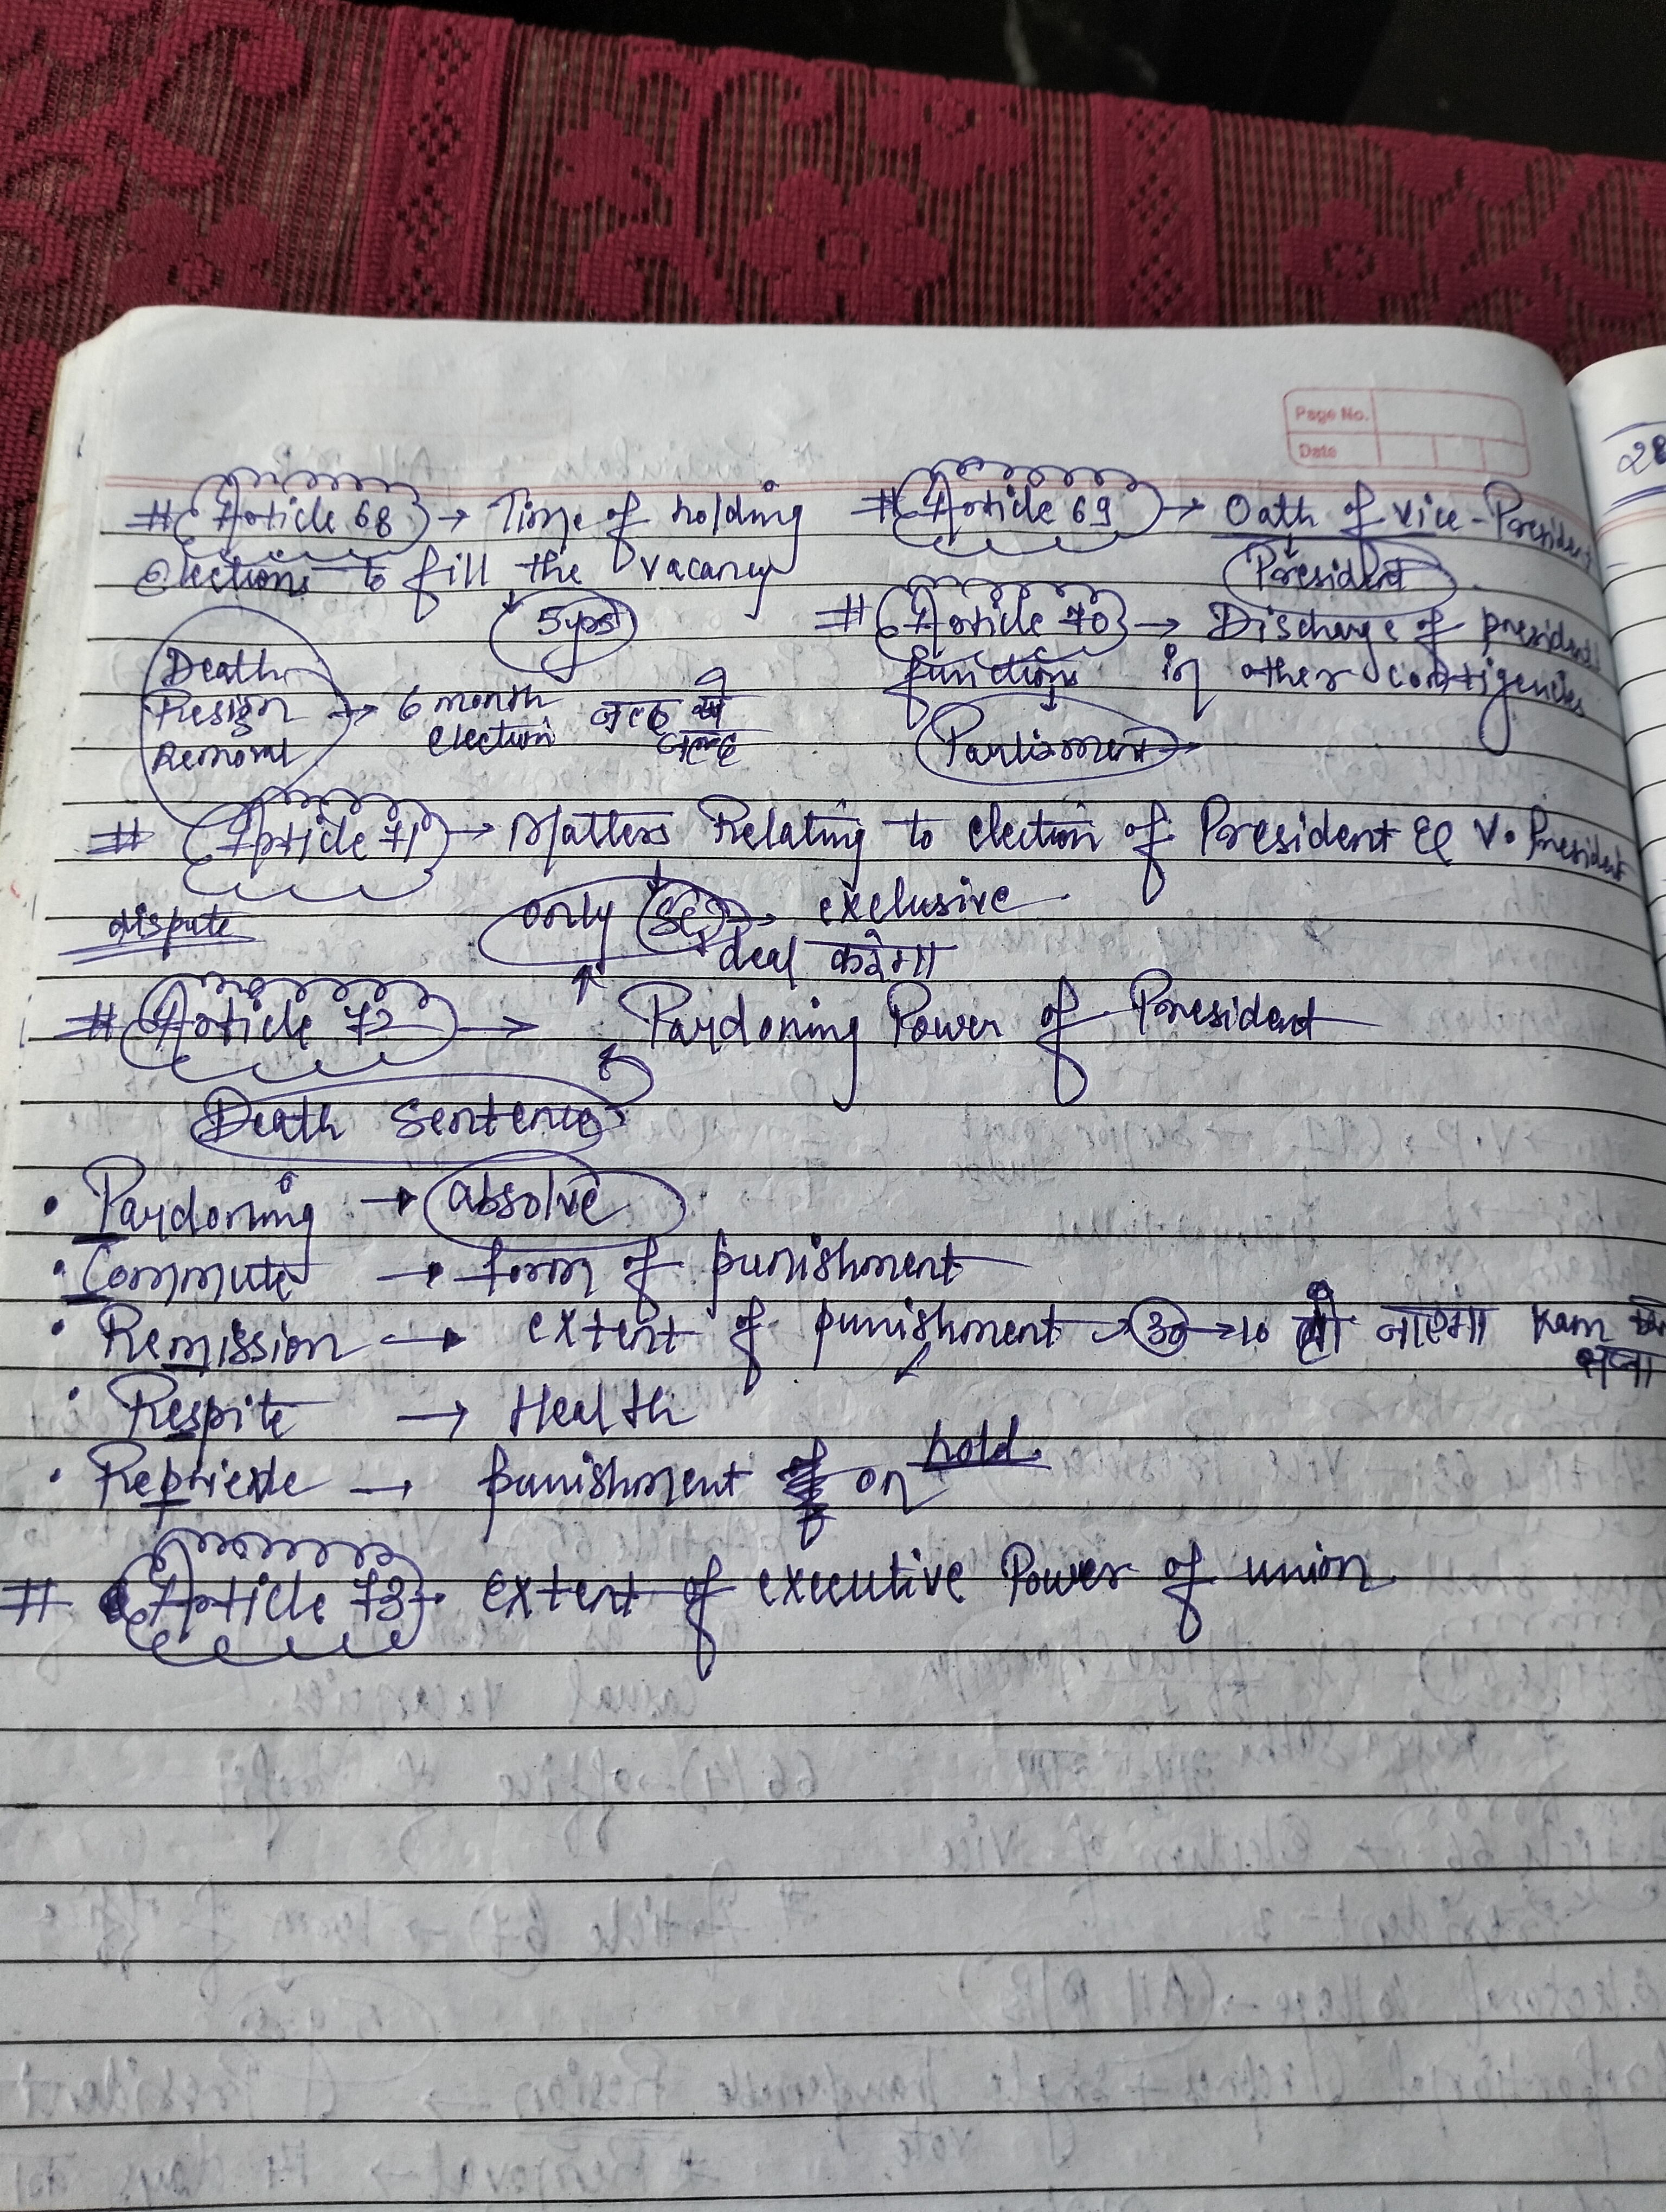 Page No.
Date
28
# Article 68 → Time of holding
elections to fill the vacancy
5yrs
Death
Resign
Removal → 6 month
election जल्द से
जल्द
# Article 69 → Oath of Vice-President
President
# Article 70 → Discharge of president
functions in other contigencies
Parliament →
# Article 71 → Matters Relating to election of President & V. President
dispute
only SC → exclusive
deal करेगा
# Article 72 → Pardoning Power of President
Death Sentence
• Pardoning → absolve
• Commute → form of punishment
• Remission → extent of punishment → 30 → 10 हो जाएगा kam
सजा
• Respite → Health
• Reprieve → punishment on hold.
# Article 73 → extent of executive Power of union